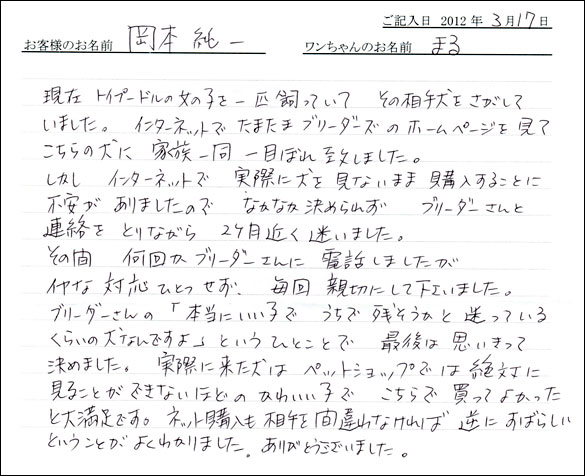 ご記入日 2012年 3月17日
お客様のお名前 岡本 純一 ワンちゃんのお名前 まる
現在 トイプードルの女の子を一匹飼っていて その相手犬をさがして
いました。 インターネットでたまたまブリーダーズのホームページを見て
こちらの犬に 家族一同 一目ぼれ致しました。
しかし インターネットで 実際に犬を見ないまま購入することに
不安がありましたので なかなか決められず ブリーダーさんと
連絡をとりながら 2ヶ月近く迷いました。
その間 何回かブリーダーさんに 電話しましたが
イヤな対応ひとつせず、 毎回 親切にして下さいました。
ブリーダーさんの「本当にいい子で うちで残そうかと迷っている
くらいの犬なんですよ」というひとことで 最後は思いきって
決めました。 実際に来た犬は ペットショップでは絶対に
見ることができないほどの かわいい子で こちらで買ってよかった
と大満足です。ネット購入も相手を間違わなければ 逆にすばらしい
ということがよくわかりました。ありがとうございました。